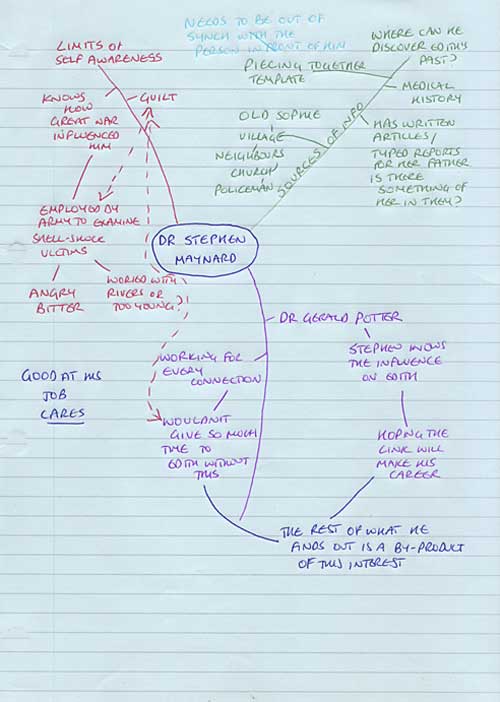 NEEDS TO BE OUT OF
SYNCH WITH THE
PERSON IN FRONT OF HIM
LIMITS OF
SELF AWARENESS
KNOWS
HOW
GREAT WAR
INFLUENCED
HIM
GUILT
EMPLOYED BY
ARMY TO EXAMINE
SHELL-SHOCK
VICTIMS
ANGRY
BITTER
WORKED WITH
RIVERS OR
TOO YOUNG?
WHERE CAN HE
DISCOVER EDITH'S
PAST?
PIECING TOGETHER
TEMPLATE
MEDICAL
HISTORY
OLD SOPHIE
VILLAGE
NEIGHBOURS
CHURCH
POLICEMAN
SOURCES OF INFO
HAS WRITTEN
ARTICLES/
TYPED REPORTS
FOR HER FATHER
IS THERE
SOMETHING OF
HER IN THEM?
DR STEPHEN
MAYNARD
DR GERALD POTTER
STEPHEN KNOWS
THE INFLUENCE
ON EDITH
WORKING FOR
EVERY
CONNECTION
WOULDN'T
GIVE SO MUCH
TIME TO
EDITH WITHOUT
THIS
HOPING THE
LINK WILL
MAKE HIS
CAREER
GOOD AT HIS
JOB
CARES
THE REST OF WHAT HE
FINDS OUT IS A BY-PRODUCT
OF THIS INTEREST